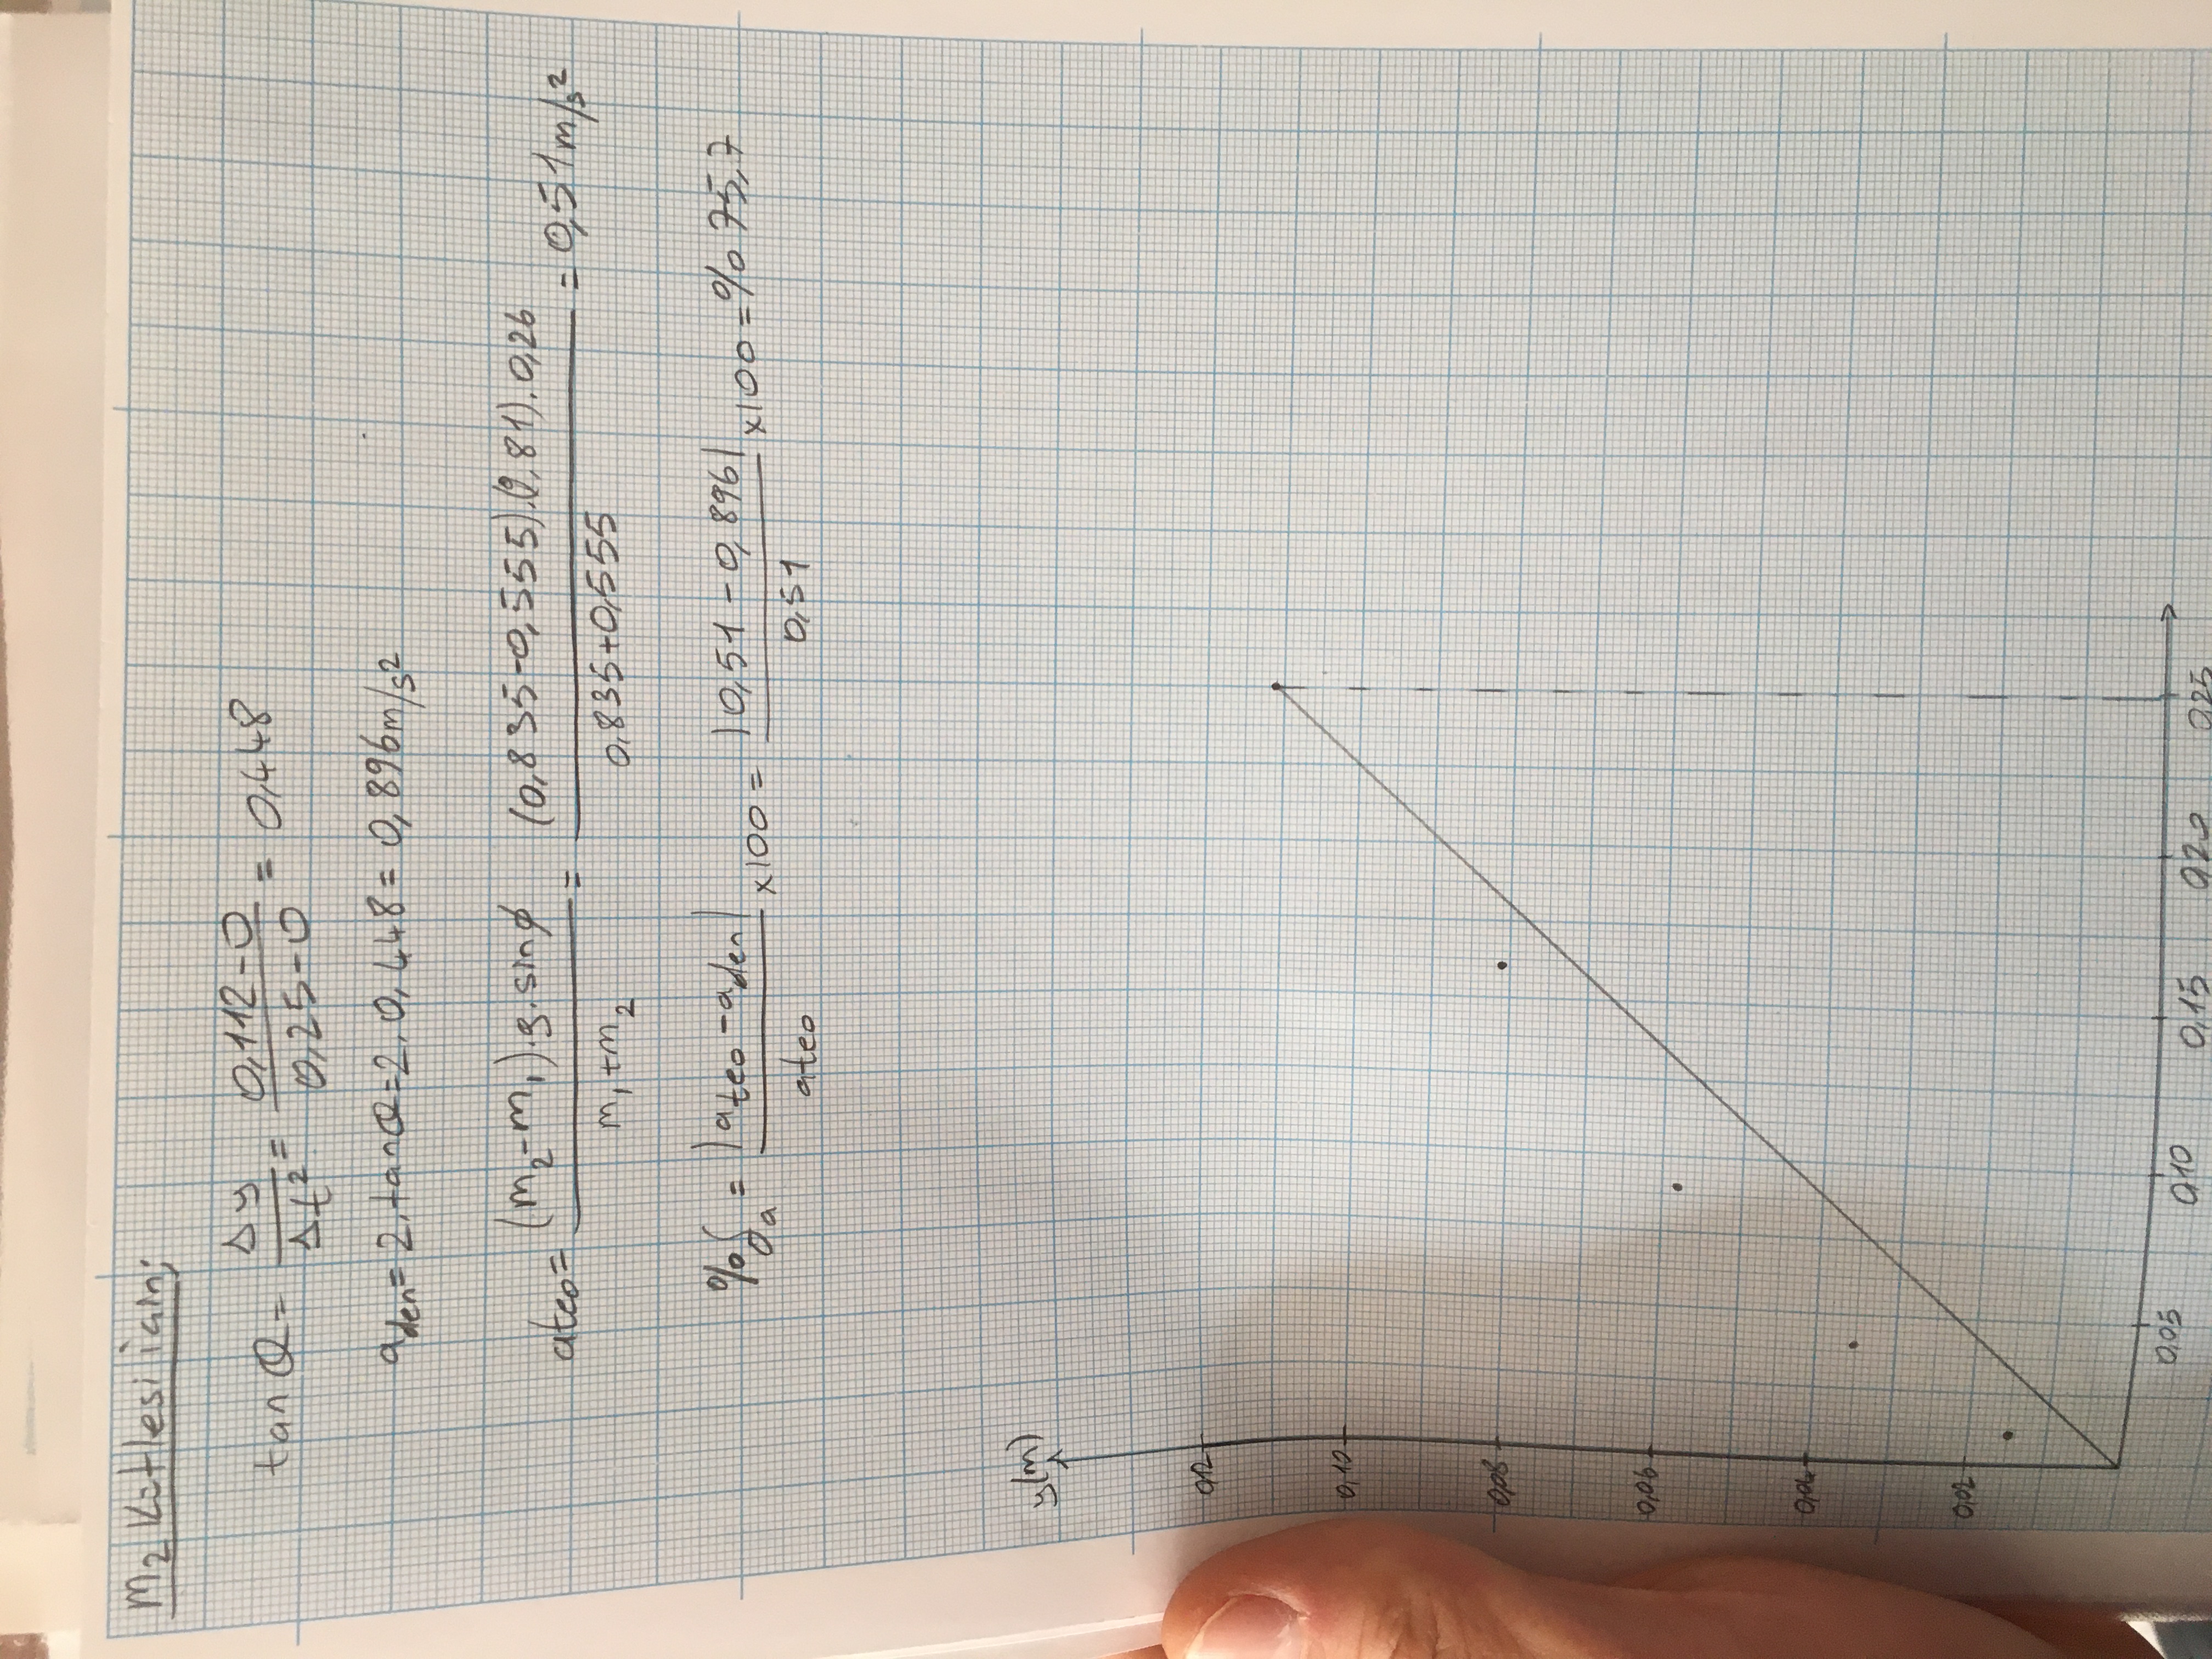 m₂ Kütlesi için;
tan θ = Δy / Δt² = 0,112-0 / 0,25-0 = 0,448
aden = 2.tanθ = 2.0,448 = 0,896m/s²
ateo = (m₂-m₁).g.sinϕ / m₁+m₂ = (0,835-0,555).(9,81).0,26 / 0,835+0,555 = 0,51m/s²
%δa = |ateo-aden| / ateo x100 = |0,51-0,896| / 0,51 x100 = %75,7
y(m)
0,12
0,10
0,08
0,06
0,04
0,02
0,05 0,10 0,15 0,20 0,25